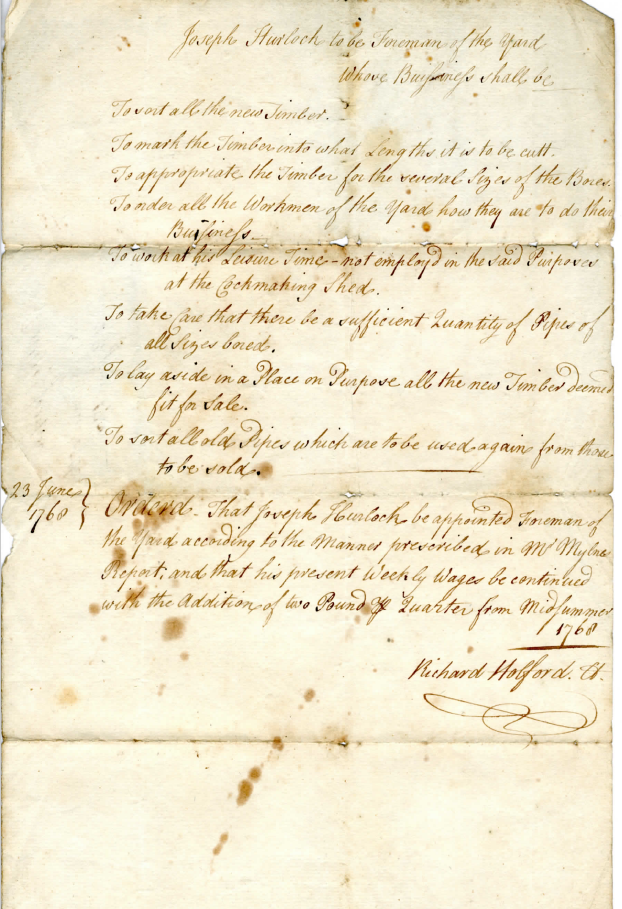 Joseph Hurloch to be Foreman of the Yard
whose Buissiness shall be
To sort all the new Timber.
To mark the Timber into what Lengths it is to be cutt.
To appropriate the Timber for the several Sizes of the Bores.
To order all the Workmen of the Yard how they are to do their
Buissiness
To work at his Leisure Time - not employd in the said Purposes
at the Cockmaking Shed.
To take Care that there be a sufficient Quantity of Pipes of
all Sizes bored.
To lay aside in a Place on Purpose all the new Timber deemed
fit for Sale.
To sort all old Pipes which are to be used again from those
to be sold.
23 June
1768
Orderd - That Joseph Hurloch be appointed Foreman of
the Yard according to the Manner prescribed in Mr Mylne
Report, and that his present Weekly Wages be continued
with the Addition of two Pound ⅌ Quarter from Midsummer
1768
Richard Holford. Ct.